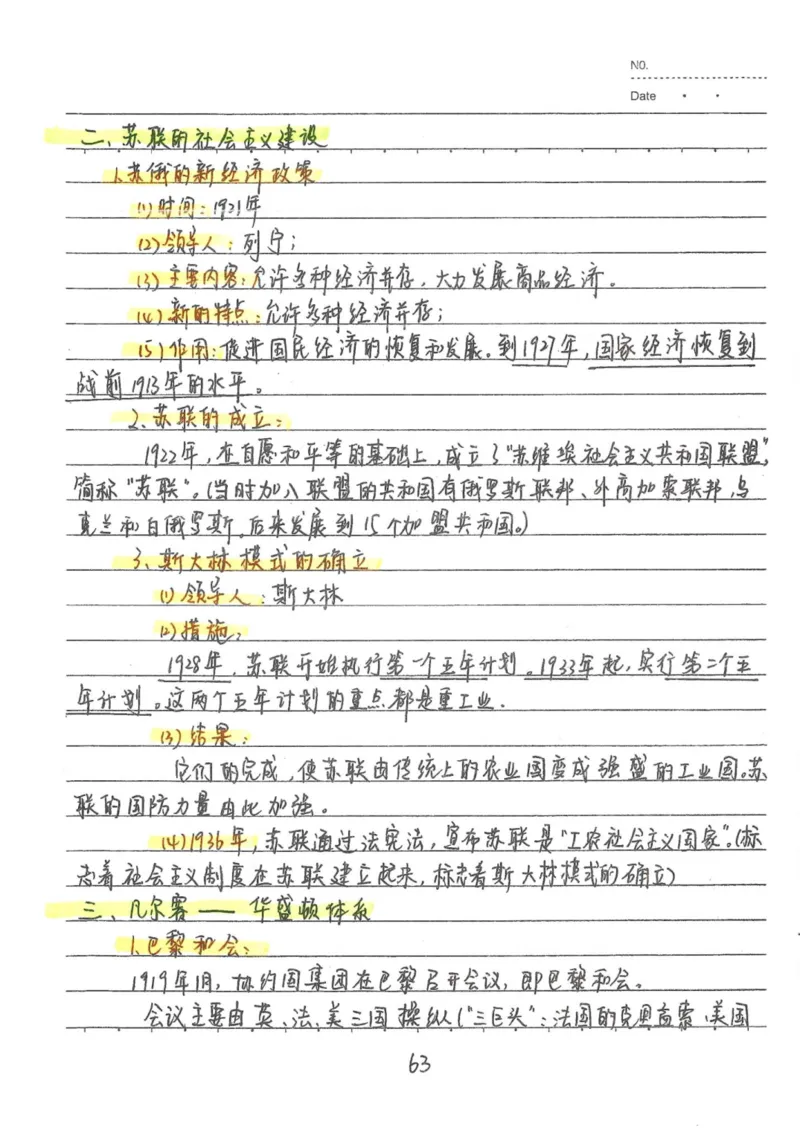 NO.
Date
二、苏联的社会主义建设
1、苏俄的新经济政策
(1)时间:1921年
(2)领导人:列宁;
(3)主要内容:允许多种经济并存,大力发展商品经济。
(4)新的特点:允许多种经济并存;
(5)作用:促进国民经济的恢复和发展。到1927年,国家经济恢复到
战前1913年的水平。
2、苏联的成立:
1922年,在自愿和平等的基础上,成立了“苏维埃社会主义共和国联盟”,
简称“苏联”。(当时加入联盟的共和国有俄罗斯联邦、外高加索联邦,乌
克兰和白俄罗斯。后来发展到15个加盟共和国。)
3、斯大林模式的确立
(1)领导人:斯大林
(2)措施:
1928年,苏联开始执行第一个五年计划。1933年起,实行第二个五
年计划。这两个五年计划的重点都是重工业.
(3)结果:
它们的完成,使苏联由传统上的农业国变成强盛的工业国。苏
联的国防力量由此加强。
(4)1936年,苏联通过法宪法,宣布苏联是“工农社会主义国家”。(标
志着社会主义制度在苏联建立起来,标志着斯大林模式的确立)
三、凡尔赛——华盛顿体系
1、巴黎和会:
1919年1月,协约国集团在巴黎召开会议,即巴黎和会。
会议主要由英、法、美三国操纵(“三巨头”:法国的克里孟索、美国
63